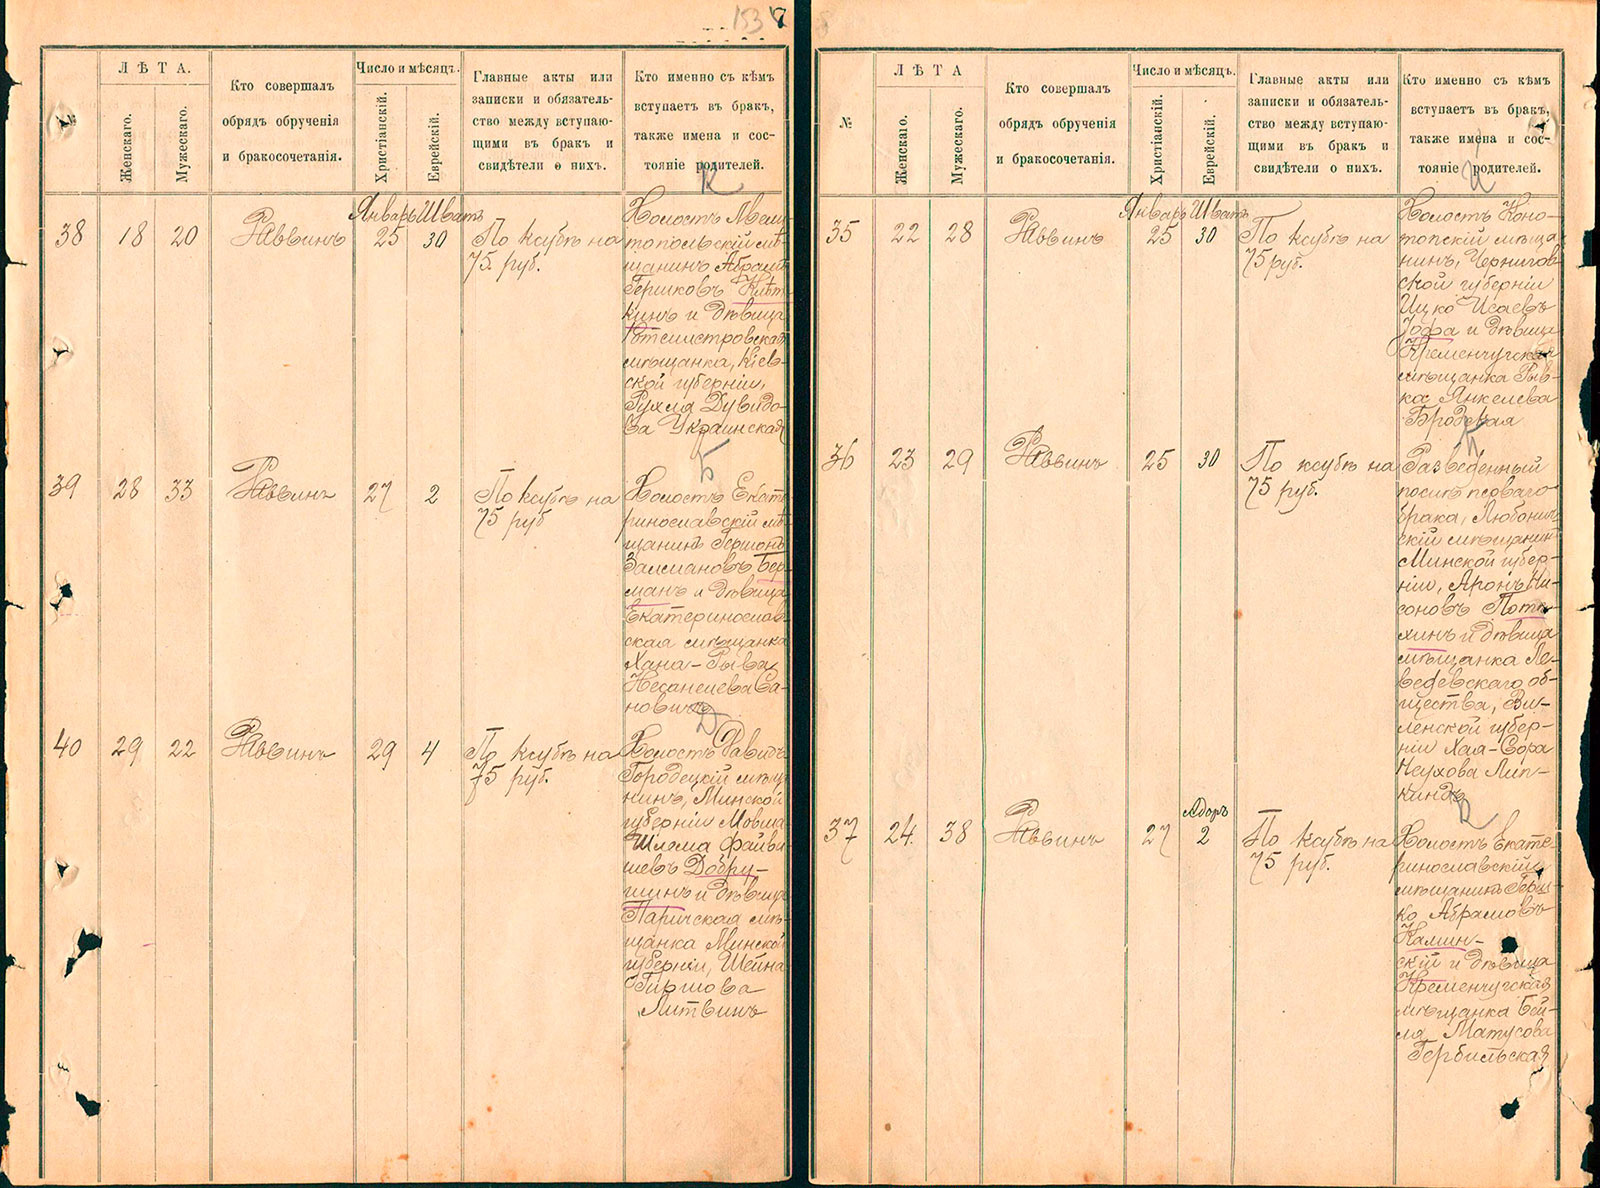 153 7
№
ЛѢТА.
Женскаго.
Мужескаго.
Кто совершалъ
обрядъ обрученія
и бракосочетанія.
Число и мѣсяцъ.
Христіанскій.
Еврейскій.
Главные акты или
записки и обязатель-
ство между вступаю-
щими въ бракъ и
свидѣтели о нихъ.
Кто именно съ кѣмъ
вступаетъ въ бракъ,
также имена и сос-
тояніе родителей.
К
38 18 20 Раввинъ
Январь Шватъ
25 30
По ксубѣ на
75. руб.
Холостъ Мели-
топольскій мѣ-
щанинъ Абрамъ
Гершковъ Клѣт-
кинъ и дѣвица
Ротмистровская
мѣщанка, Кіев-
ской губерніи,
Рухля Дувидо-
ва Украинская
Б
39 28 33 Раввинъ 27 2
По ксубѣ на
75 руб
Холостъ Екате-
ринославскій мѣ-
щанинъ Гершонъ
Залмановъ Бер-
манъ и дѣвица
Екатеринослав-
ская мѣщанка
Хана-Рыва
Несанелева Са-
новичъ
Д
40 29 22 Раввинъ 29 4
По ксубѣ на
75 руб.
Холостъ Давидъ-
Городецкій мѣща-
нинъ, Минской
губерніи Мовша
Шлема Файви-
шевъ Добру-
шинъ и дѣвица
Паричская мѣ-
щанка Минской
губерніи, Шейна
Гиршова
Литвинъ
8
№
ЛѢТА
Женскаго.
Мужескаго.
Кто совершалъ
обрядъ обрученія
и бракосочетанія.
Число и мѣсяцъ.
Христіанскій.
Еврейскій.
Главные акты или
записки и обязатель-
ство между вступаю-
щими въ бракъ и
свидѣтели о нихъ.
Кто именно съ кѣмъ
вступаетъ въ бракъ,
также имена и сос-
тояніе родителей.
И
35 22 28 Раввинъ
Январь Шватъ
25 30
По ксубѣ на
75 руб.
Холостъ Коно-
топскій мѣща-
нинъ, Чернигов-
ской губерніи
Ицко Исаевъ
Іоффа и дѣвица
Кременчугская
мѣщанка Рыв-
ка Янкелева
Бродская
П
36 23 29 Раввинъ 25 30
По ксубѣ на
75 руб.
Разведенный
послѣ перваго
брака, Любонич-
скій мѣщанинъ
Минской губер-
ніи, Аронъ Ни-
соновъ Пота-
хинъ и дѣвица
мѣщанка Ле-
бедевскаго об-
щества, Ви-
ленской губер-
ніи Хая-Сора
Неухова Лип-
киндъ
К
37 24. 38 Раввинъ 27
Адоръ
2
По ксубѣ на
75 руб.
Холостъ Екате-
ринославскій
мѣщанинъ Герш-
ко Абрамовъ
Камин-
скій и дѣвица
Кременчугская
мѣщанка Бей-
ля Матусова
Гербильская